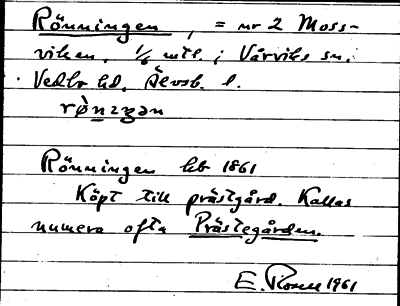 Rönningen, = nr 2 Moss-
viken, 1/6 mtl. i Vårviks sn.
Vedbo hd. Älvsb. l.
rø̀nıŋən
Rönningen hb 1861
Köpt till prästgård. Kallas
numera ofta Prästegården.
E. Rosell 1961